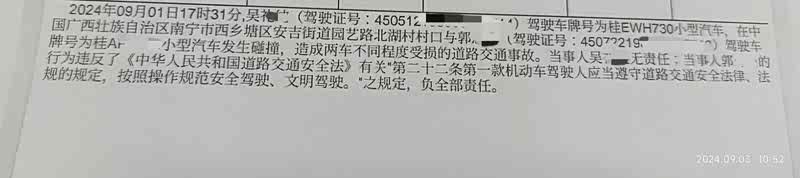 2024年09月01日17时31分,吴 (驾驶证号:450512 4) 驾驶车牌号为桂EWH730小型汽车,在中
国广西壮族自治区南宁市西乡塘区安吉街道园艺路北湖村村口与郭 (驾驶证号:45072219 ) 驾驶车
牌号为桂A 小型汽车发生碰撞,造成两车不同程度受损的道路交通事故。当事人吴 无责任;当事人郭 的
行为违反了《中华人民共和国道路交通安全法》有关"第二十二条第一款机动车驾驶人应当遵守道路交通安全法律、法
规的规定,按照操作规范安全驾驶、文明驾驶。"之规定,负全部责任。
2024.09.03 10:52